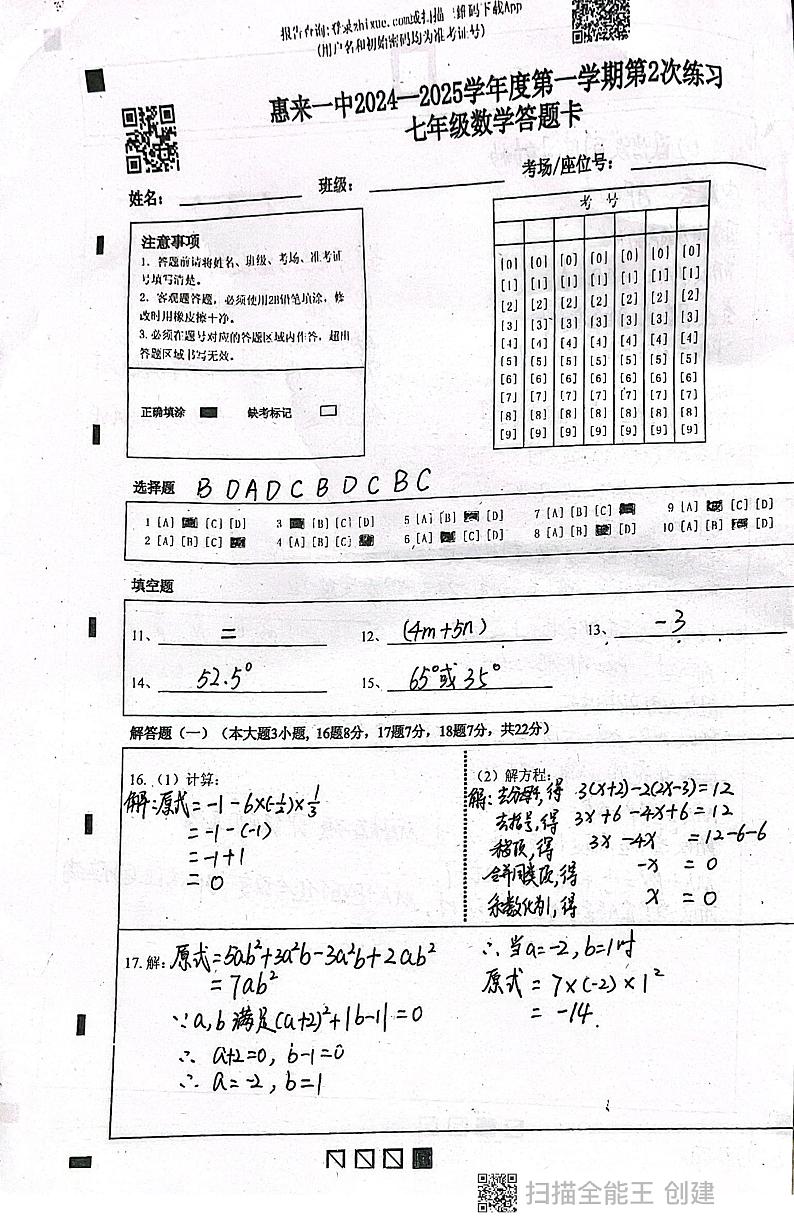 报告查询:登录zhixue.com或扫描二维码下载App
(用户名和初始密码均为准考证号)
惠来一中2024—2025学年度第一学期第2次练习
七年级数学答题卡
姓名: 班级: 考场/座位号:
注意事项
1. 答题前请将姓名、班级、考场、准考证
号填写清楚。
2. 客观题答题,必须使用2B铅笔填涂,修
改时用橡皮擦干净。
3. 必须在题号对应的答题区域内作答,超出
答题区域书写无效。
正确填涂 缺考标记
考 号
[0] [0] [0] [0] [0] [0] [0]
[1] [1] [1] [1] [1] [1] [1]
[2] [2] [2] [2] [2] [2] [2]
[3] [3] [3] [3] [3] [3] [3]
[4] [4] [4] [4] [4] [4] [4]
[5] [5] [5] [5] [5] [5] [5]
[6] [6] [6] [6] [6] [6] [6]
[7] [7] [7] [7] [7] [7] [7]
[8] [8] [8] [8] [8] [8] [8]
[9] [9] [9] [9] [9] [9] [9]
选择题 B D A D C B D C B C
1 [A] [C] [D] 3 [B] [C] [D] 5 [A] [B] [D] 7 [A] [B] [C] 9 [A] [C] [D]
2 [A] [B] [C] 4 [A] [B] [C] 6 [A] [C] [D] 8 [A] [B] [D] 10 [A] [B] [D]
填空题
11、 = 12、 (4m+5n) 13、 -3
14、 52.5° 15、 65°或35°
解答题(一)(本大题3小题, 16题8分,17题7分,18题7分,共22分)
16.(1)计算:
解:原式=-1-6×(-1/2)×1/3
=-1-(-1)
=-1+1
=0
(2)解方程:
解:去分母,得 3(x+2)-2(2x-3)=12
去括号,得 3x+6-4x+6=12
移项,得 3x-4x =12-6-6
合并同类项,得 -x = 0
系数化为1,得 x = 0
17.解:原式=5ab²+3a²b-3a²b+2ab²
=7ab²
∵a,b满足(a+2)²+|b-1|=0
∴ a+2=0, b-1=0
∴ a=-2, b=1
∴当a=-2,b=1时
原式=7×(-2)×1²
=-14.
扫描全能王 创建